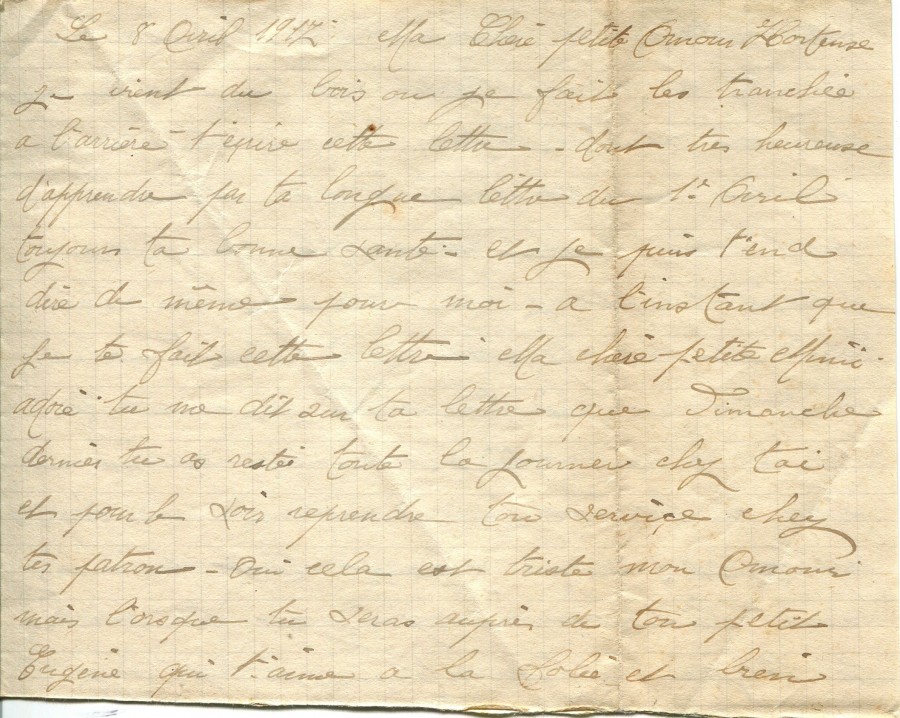 Le 8 Avril 1917 Ma Chère petite Amour Hortense
je vient du bois ou je fait les tranchée
a l'arrière t'ecrire cette lettre - dont très heureuse
d'apprendre par ta longue lettre du 1er Avril
toujours ta bonne santé - et je puis t'end
dire de même pour moi - a l'instant que
je te fait cette lettre Ma chère petite Mimi
adoré tu me dit sur ta lettre que Dimanche
dernier tu as resté toute la journer chez toi
et pour le soir reprendre ton service chez
tes patron - oui cela est triste mon Amour
mais l'orsque tu seras auprès de ton petit
Eugène qui t'aime a la folie et bien